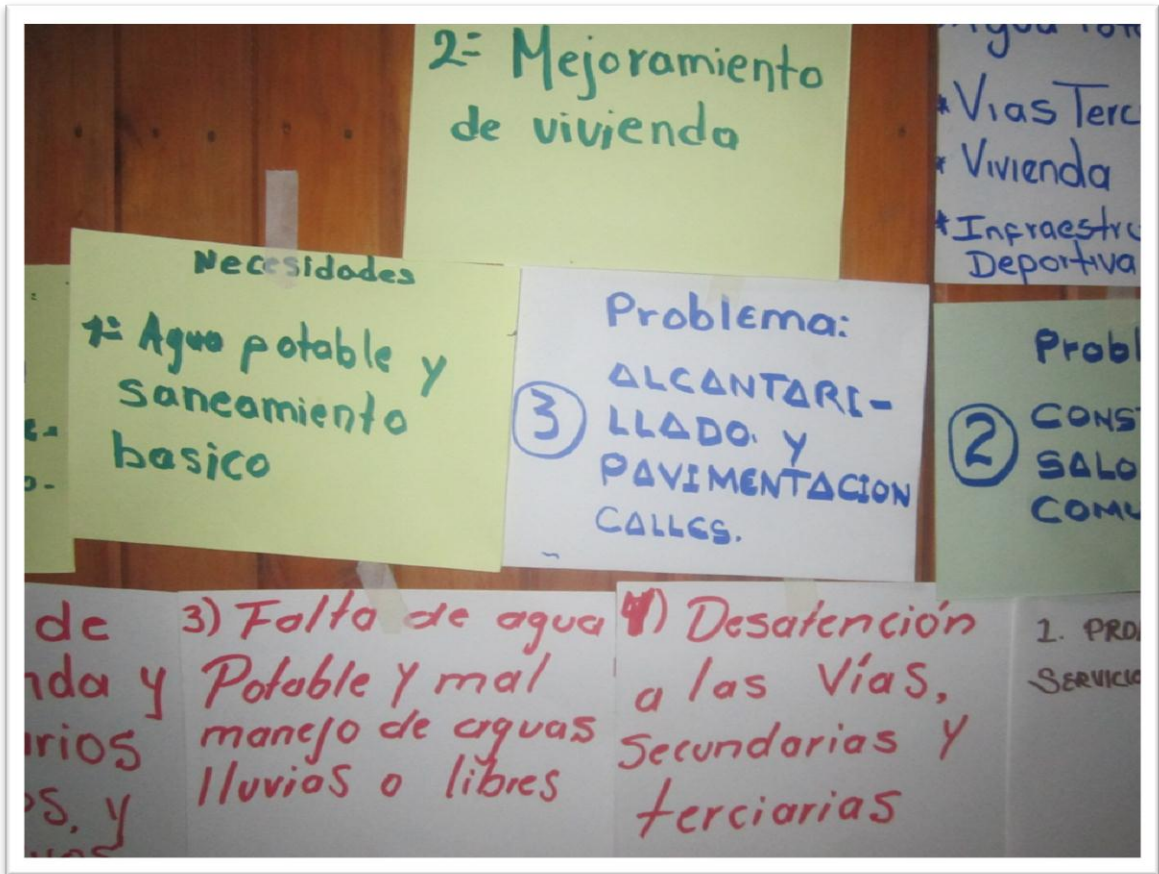 2= Mejoramiento
de vivienda
* Vias
* Vivienda
*
Deportiva
Necesidades
1= Agua potable y
saneamiento
basico
Problema:
3 ALCANTARI-
LLADO. Y
PAVIMENTACION
CALLES.
2
de
y
3) Falta de agua
Potable y mal
manejo de aguas
lluvias o libres
4) Desatención
a las Vías,
Secundarias y
terciarias
1.